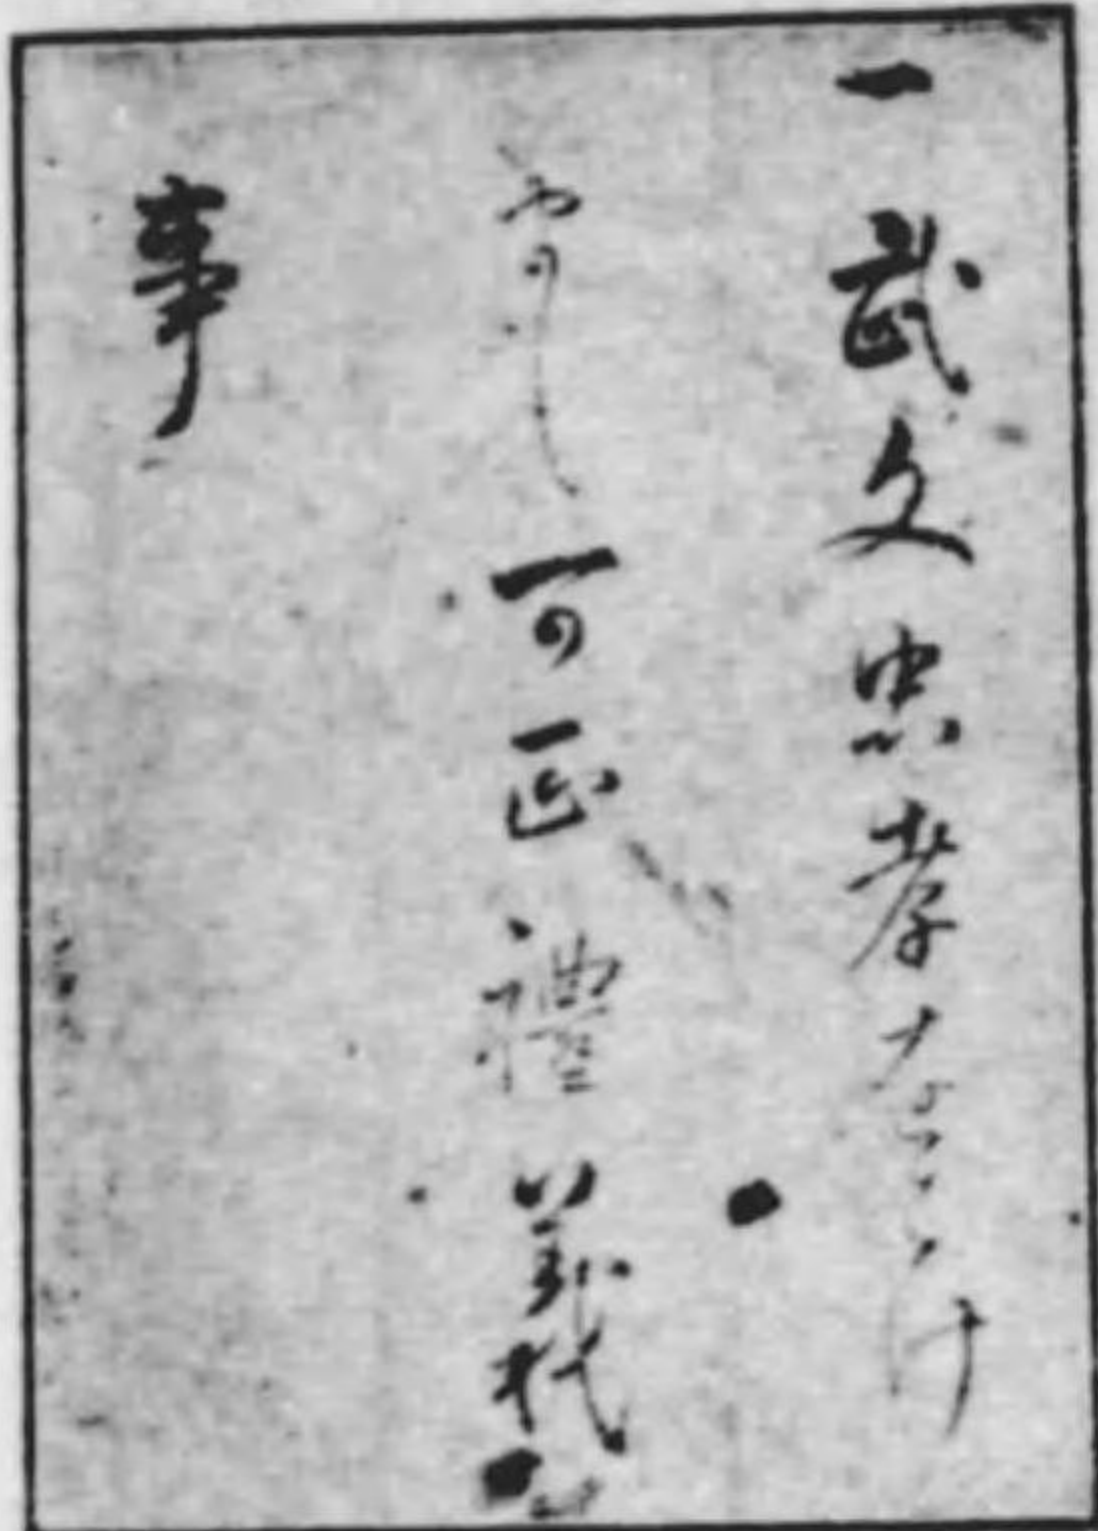 一武文忠孝をはけ
まし可正禮義
事